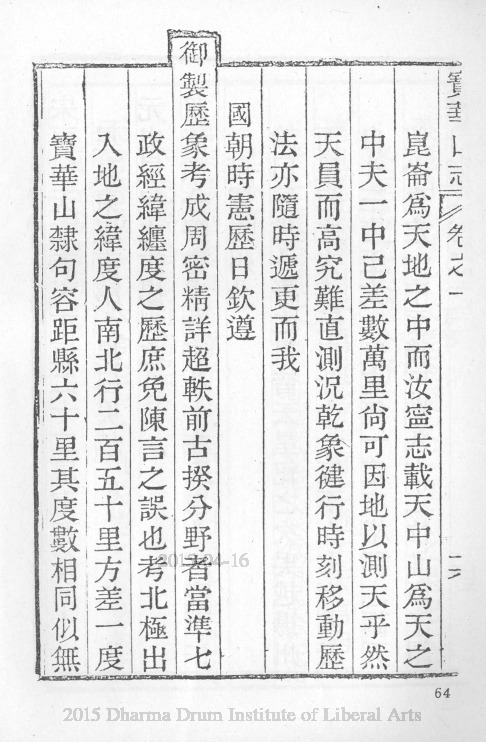 寶華山志 卷之一
崑崙爲天地之中而汝寧志載天中山爲天之
中夫一中已差數萬里尙可因地以測天乎然
天員而高究難直測況乾象健行時刻移動歷
法亦隨時遞更而我
國朝時憲歷日欽遵
御製歷象考成周密精詳超軼前古揆分野者當準七
政經緯纏度之歷庶免陳言之誤也考北極出
入地之緯度人南北行二百五十里方差一度
寶華山隸句容距縣六十里其度數相同似無
64
2015 Dharma Drum Institute of Liberal Arts